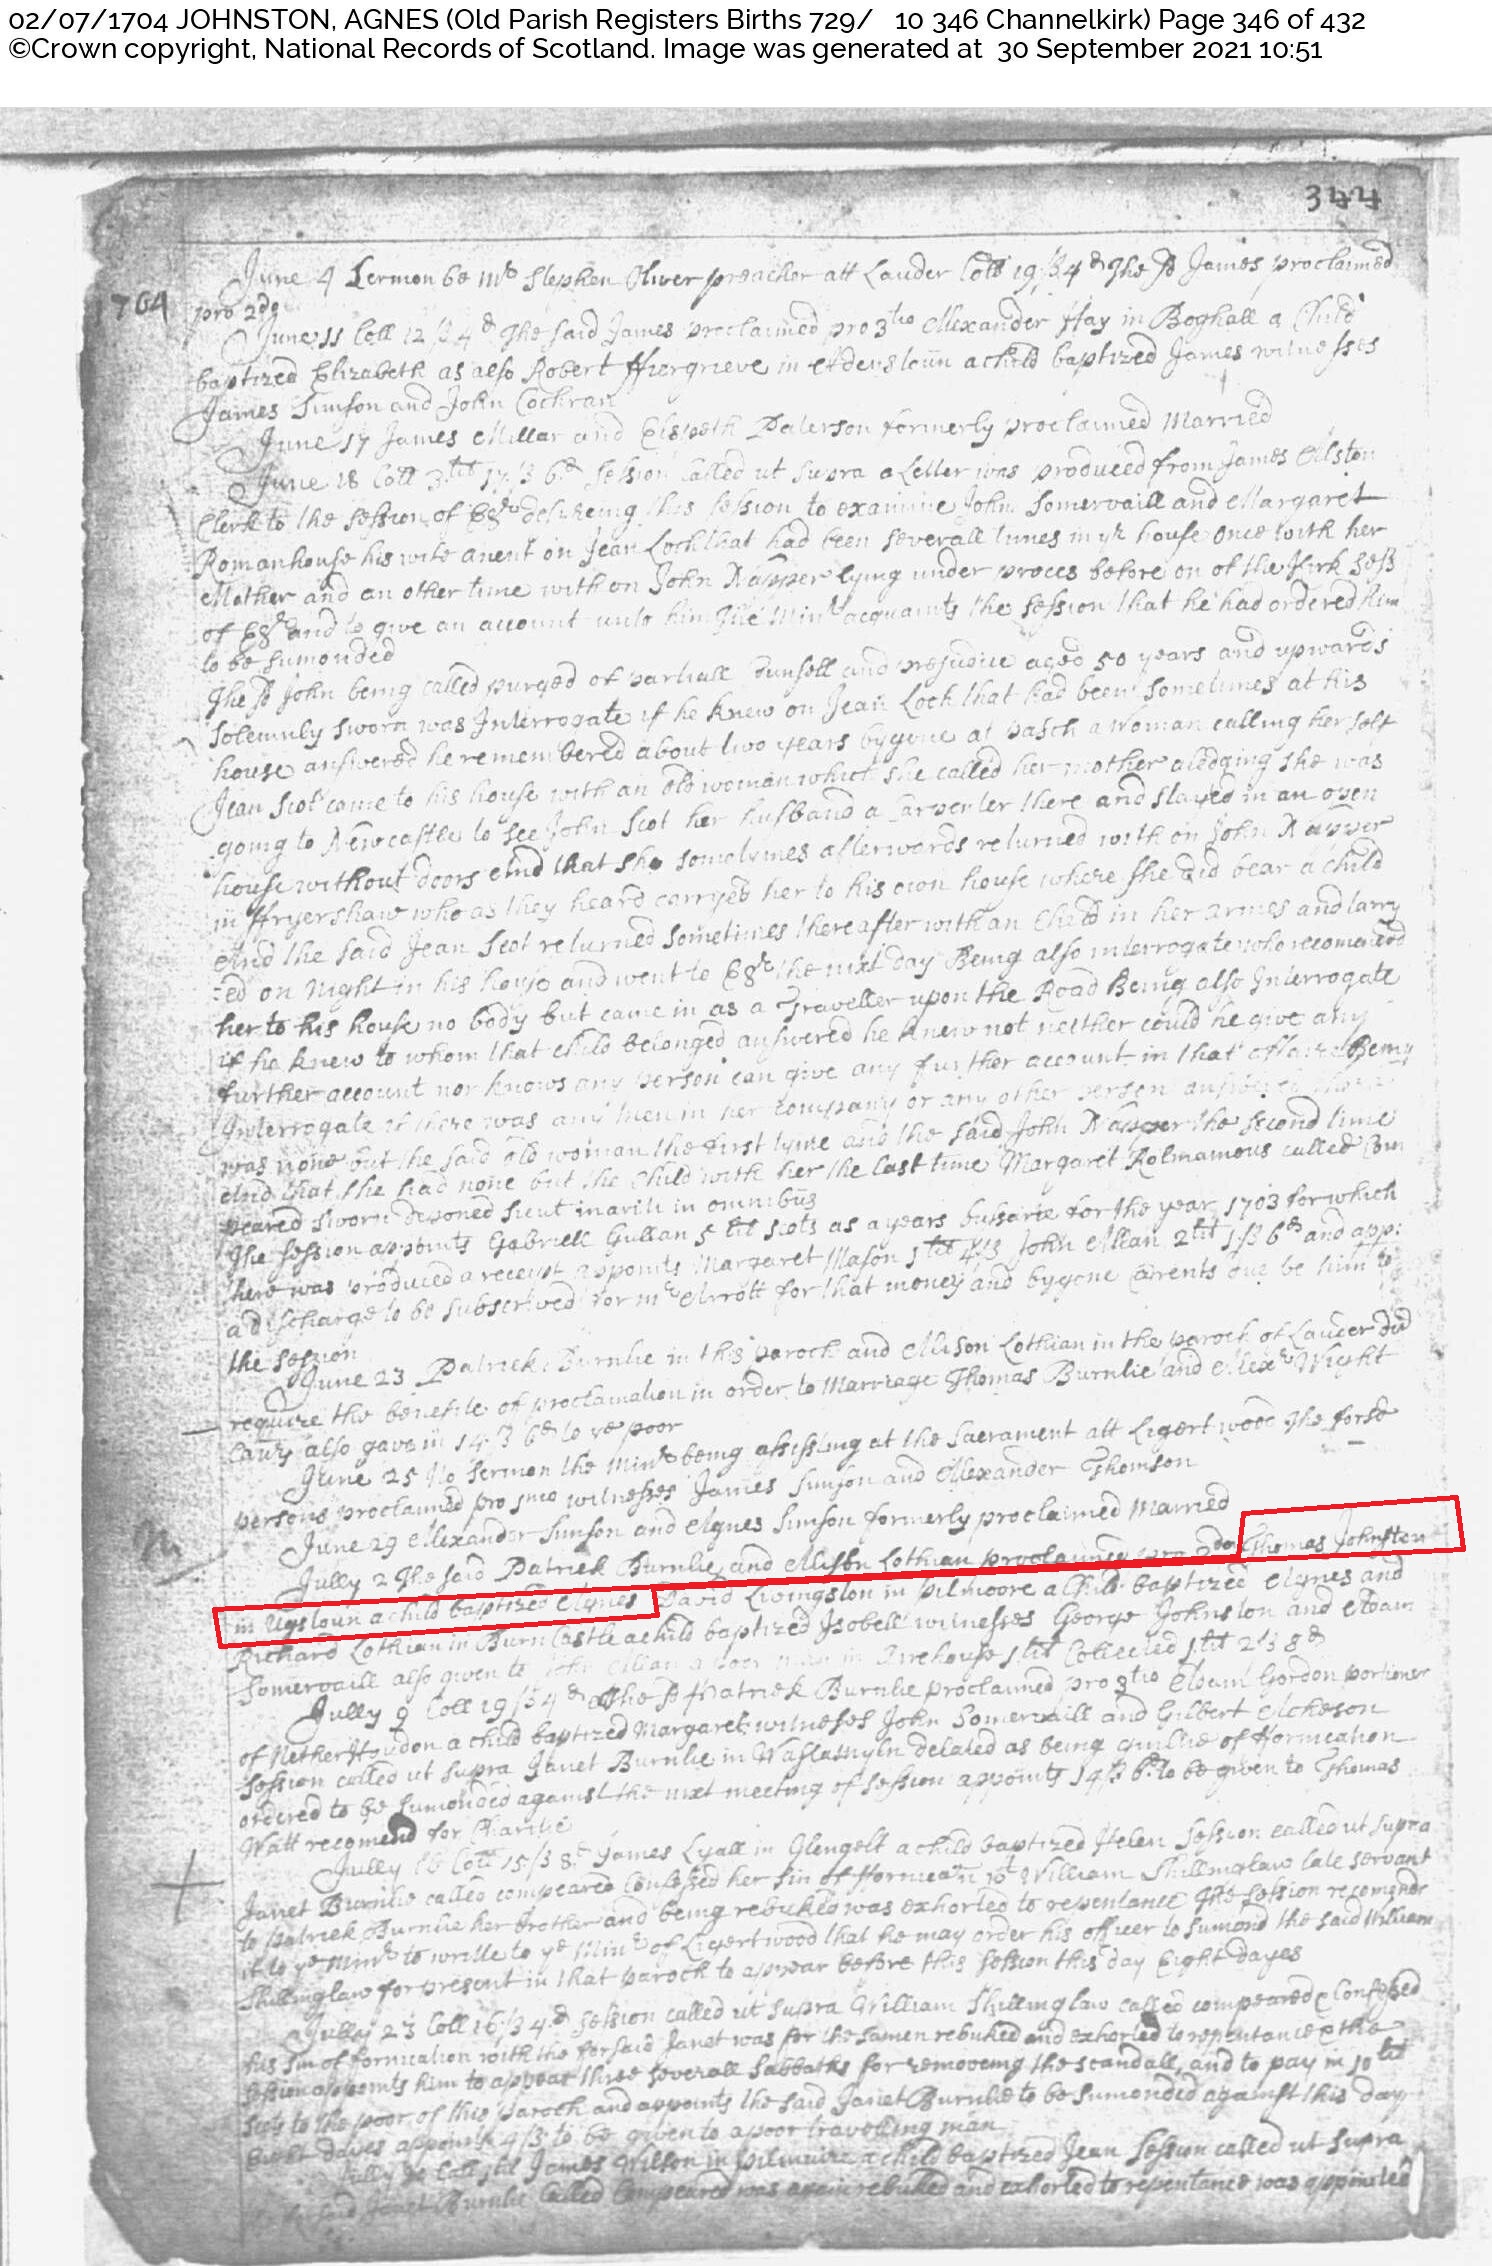 02/07/1704 JOHNSTON, AGNES (Old Parish Registers Births 729/ 10 346 Channelkirk) Page 346 of 432
©Crown copyright, National Records of Scotland. Image was generated at 30 September 2021 10:51
344
1704
June 4 Sermon be Mr Stephen Oliver preacher att Lauder Coll 19/3 4d The sd James proclaimed
pro 2do
June 11 Coll 12/3 4d The said James proclaimed pro 3tio Alexander Hay in Boghall a Child
baptized Elizabeth as also Robert ffiergrieve in a child baptized James witnesses
James Simson and John Cochran
June 17 James Millar and Elspeth Paterson formerly proclaimed Married
June 18 Coll 3 lib 17/3 6d Session called ut supra a Letter was produced from James Alston
Clerk to the session of Edr desireing this session to examine John Somervaill and Margaret
Romanhouse his wife anent on Jean Loch that had been severall times in yr house once with her
Mother and an other time with on John Napper lying under proces before on of the Kirk Sess
of Edr and to give an account unto him The Minr acquaints the session that he had ordered him
to be sumonded
The sd John being called purged of partiall Counsell and prejudice aged 50 years and upwards
solemnly sworn was Interrogate if he knew on Jean Loch that had been sometimes at his
house answered he remembered about two years bygone at pasch a woman calling her self
Jean Scot came to his house with an old woman which she called her mother aledging she was
going to Newcastle to see John Scot her husband a Carpenter there and stayed in an open
house without doors And that she sometymes afterwards returned with on John Napper
in ffryershaw who as they heard carryed her to his own house where she did bear a child
And the said Jean Scot returned sometimes thereafter with an Child in her armes and tarry
=ed on night in his house and went to Edr the nixt day Being also interrogate who recomended
her to his house no body but came in as a Traveller upon the Road Being also Interrogate
if he knew to whom that child belonged answered he knew not neither could he give any
further account nor knows any person can give any further account in that affaire Being
Interrogate if there was any men in her company or any other person answered there
was none but the said old woman the first tyme and the said John Napper the second time
And that she had none but the Child with her the last time Margaret called Com
peared sworn deponed sicut mariti in omnibus
The session appoints Gabriell Gullan 5 lib scots as a years bursarie for the year 1703 for which
there was produced a receipt appoints Margaret Mason 1 lib 4/3 John Allan 2 lib 1/3 6d and app:
a discharge to be subscrived for Mr Arrott for that money and bygone @rents due be him to
the session
June 23 Patrick Burnlie in this parock and Alison Lothian in the parock of Lauder did
require the benefite of proclamation in order to Marriage Thomas Burnlie and Alexr Wight
Cautrs also gave in 14/3 6d to ye poor
June 25 No sermon the Minr being assisting at the Sacrament att Ligertwood The forsd
persons proclaimed pro imo witnesses James Simson and Alexander Thomson
June 29 Alexander Simson and Agnes Simson formerly proclaimed Married
Jully 2 The said Patrick Burnlie and Alison Lothian proclaimed pro 2do Thomas Johnston
in Ugstoun a child baptized Agnes David Livingston in pilmoore a Child baptized Agnes and
Richard Lothian in Burn Castle a child baptized Isobell witnesses George Johnston and Adam
Somervaill also given to John Allan a poor man in 1 lib Collected 1 lib 2/3 8d
Jully 9 Coll 19/3 4d The sd Patrick Burnlie proclaimed pro 3tio Adam Gordon portioner
of Nether Howdon a child baptized Margaret witneses John Somervaill and Gilbert Acheson
Session called ut supra Janet Burnlie in delated as being guiltie of fornication
ordered to be sumonded against the nixt meeting of session appoints 14/3 6d to be given to Thomas
Watt recomend for Charitie
Jully 16 Coll 15/3 8d James Lyall in Glengelt a child baptized Helen Session called ut supra
Janet Burnlie called compeared Confessed her sin of fornication wt William Shillinglaw late servant
to Patrick Burnlie her brother and being rebuked was exhorted to repentance The session recomends
it to ye Minr to writte to ye Minr of Ligertwood that he may order his officer to sumond the said William
Shillinglaw for present in that parock to appear before this session this day Eight dayes
Jully 23 Coll 16/3 4d Session called ut supra William Shillinglaw called compeared & Confessed
his sin of fornication with the forsaid Janet was for the samen rebuked and exhorted to repentance & the
session appoints him to appear three severall Sabbaths for removeing the scandall, and to pay in 10 lib
scots to the poor of this parock and appoints the said Janet Burnlie to be sumonded against this day
Eight dayes appoints 4/3 to be given to a poor travelling man
Jully 30 Coll 1 lib James Wilson in pilmuire a child baptized Jean Session called ut supra
the forsaid Janet Burnlie Called Compeared was again rebuked and exhorted to repentance was appointed